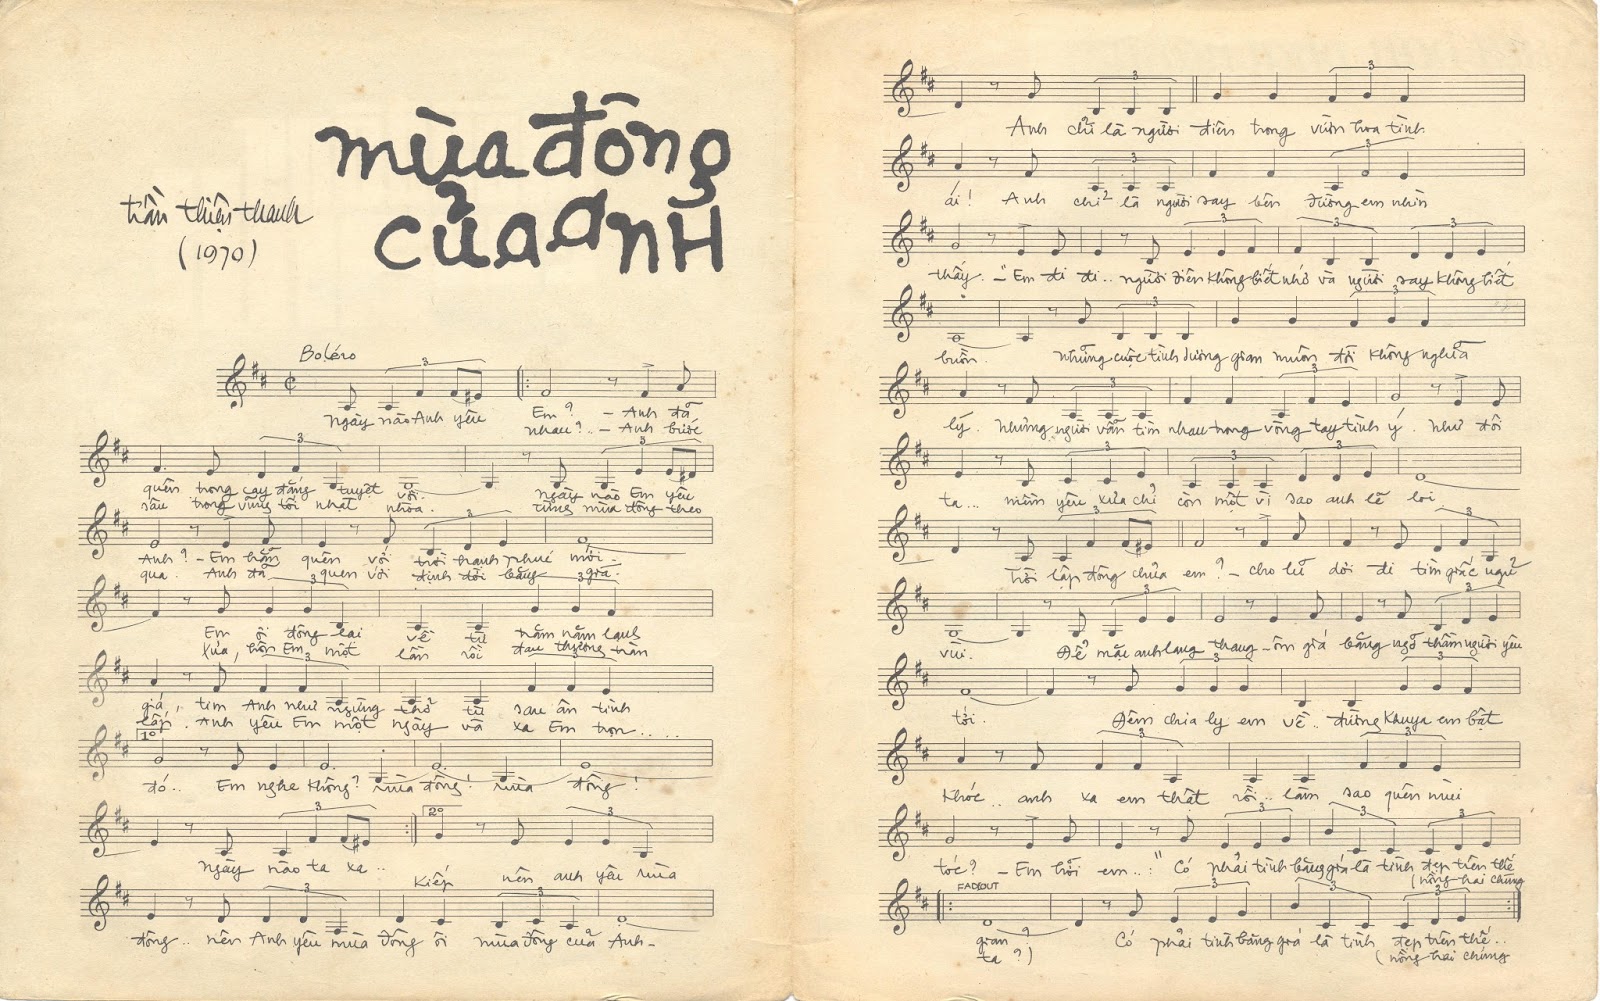 mùa đông
của anh
trần thiện thanh
(1970)
Boléro
3
Ngày nào Anh yêu Em? - Anh đã
nhau?.. - Anh biết
3
quên trong cay đắng tuyệt vời.. Ngày nào Em yêu
sâu trong vũng tối nhạt nhòa. từng mùa đông theo
3
Anh? - Em hẳn quên với trời hạnh phúc mới -
qua. Anh đã quen với định đời băng giá.
3 3
Em ơi đông lại về từ nằm lạnh
Xưa, hôn Em một lần rồi đau thương tràn
3 3
giá, tim Anh như ngừng thở từ sau ân tình
lấp. Anh yêu Em một ngày và xa Em trọn.....
1º
đó.. Em nghe không? mùa đông! mùa đông!
3 2º 3
ngày nào ta xa.. Kiếp nên anh yêu mùa
3 3
đông.. nên Anh yêu mùa đông ôi mùa đông của Anh-
3 3
Anh chỉ là người điên trong vườn hoa tình
3 3
ái! Anh chỉ là người say bên đường em nhìn
3 3
thấy. - "Em đi đi.. người điên không biết nhớ và người say không biết
3 3
buồn. Những cuộc tình dương gian muôn đời không nghĩa
3 3
lý. Nhưng người vẫn tìm nhau trong vòng tay tình ý. Như đôi
3 3
ta... mềm yêu xưa chỉ còn một vì sao anh lẻ loi
3 3
Trời lập đông chưa em? - cho lũ dơi đi tìm giấc ngủ
3 3
vùi. Để mặc anh lang thang - ôm giá băng ngỡ thầm người yêu
3 3
tới. Đêm chia ly em về.. đường khuya em bật
3 3
khóc.. anh xa em thật rồi.. làm sao quên mùi
3 3 3
tóc? - Em hỡi em..:" Có phải tình băng giá là tình đẹp trên thế
(nồng hai chúng
FADEOUT
3 3 3
gian? Có phải tình băng giá là tình đẹp trên thế..
ta?) (nồng hai chúng